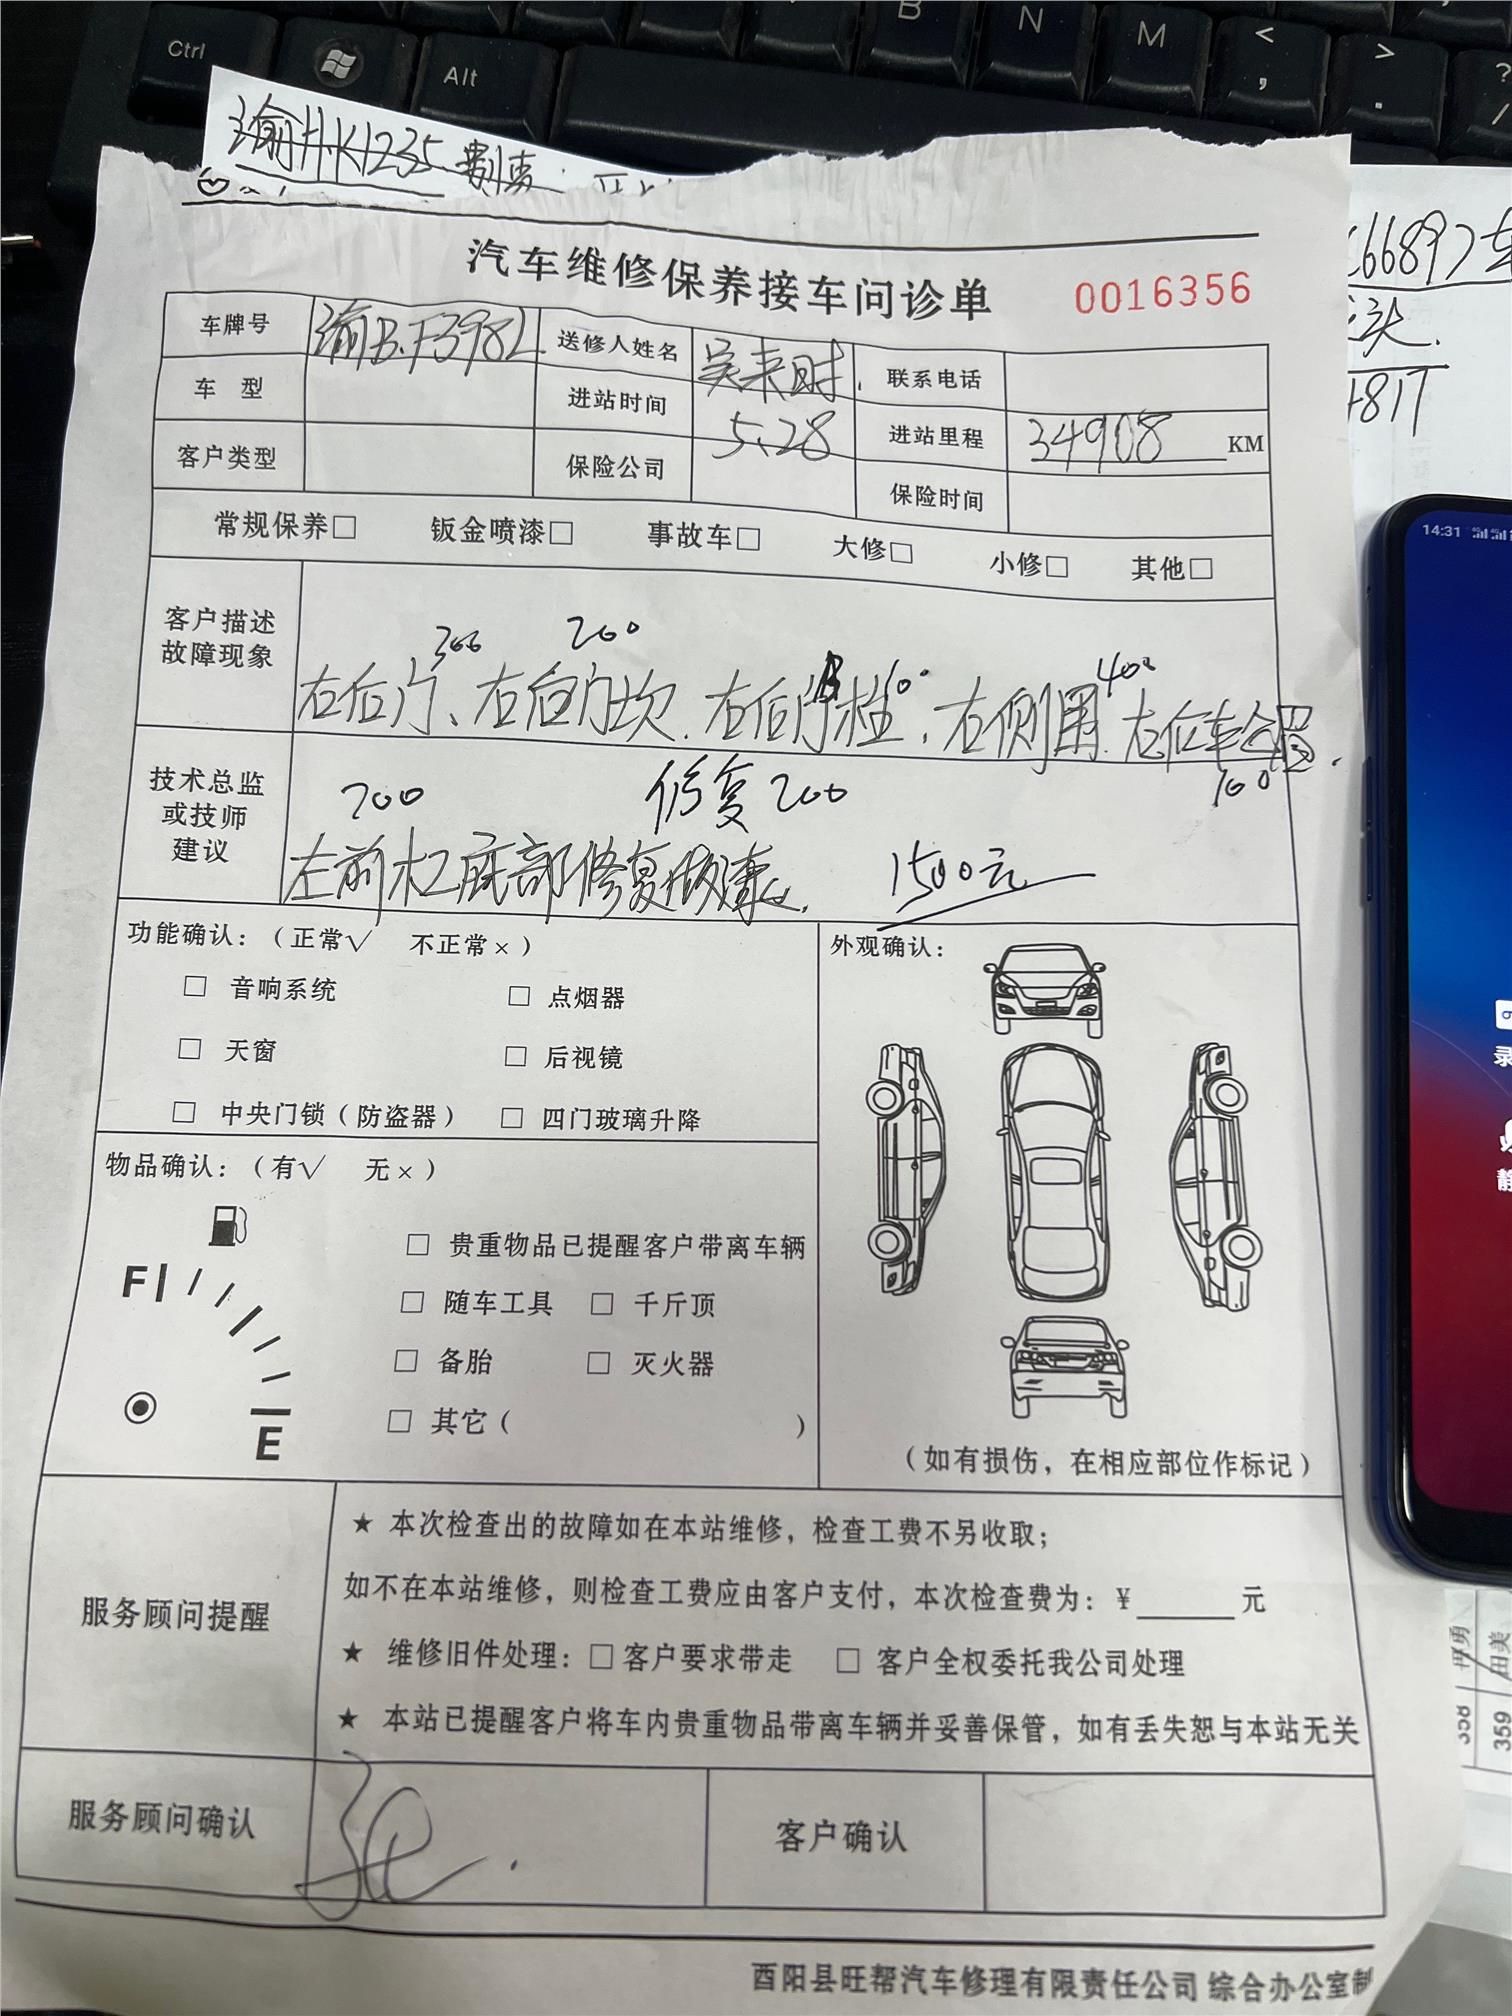 Ctrl
Alt
B
N
M
<
,
>
.
?
/
渝H.K1235
汽车维修保养接车问诊单
0016356
车牌号 渝B.F398L 送修人姓名 吴来时 联系电话
车 型 进站时间 5.28 进站里程 34908 KM
客户类型 保险公司 保险时间
常规保养□ 钣金喷漆□ 事故车□ 大修□ 小修□ 其他□
客户描述
故障现象
300 200 100 400
右后门、右后门坎.右后 柱.右侧围.
技术总监
或技师
建议
200 修复 200 100
左前杠底部修复做漆. 1500元
功能确认：（正常√ 不正常×） 外观确认：
□ 音响系统 □ 点烟器
□ 天窗 □ 后视镜
□ 中央门锁（防盗器） □ 四门玻璃升降
物品确认：（有√ 无×）
□ 贵重物品已提醒客户带离车辆
F
□ 随车工具 □ 千斤顶
□ 备胎 □ 灭火器
□ 其它（ ）
E
（如有损伤，在相应部位作标记）
服务顾问提醒
★ 本次检查出的故障如在本站维修，检查工费不另收取；
如不在本站维修，则检查工费应由客户支付，本次检查费为：¥______元
★ 维修旧件处理：□客户要求带走 □ 客户全权委托我公司处理
★ 本站已提醒客户将车内贵重物品带离车辆并妥善保管，如有丢失恕与本站无关
服务顾问确认 客户确认
酉阳县旺帮汽车修理有限责任公司 综合办公室制
66897
817
14:31
录
静
358
359